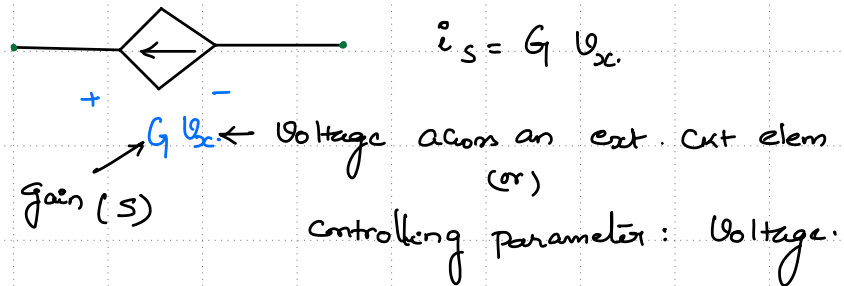 i_s = G v_x.
+ −
G v_x. ← Voltage across an ext. ckt elem
gain (S)
(or)
controlling parameter: Voltage.